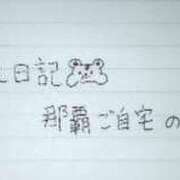 日記
那覇ご自宅の